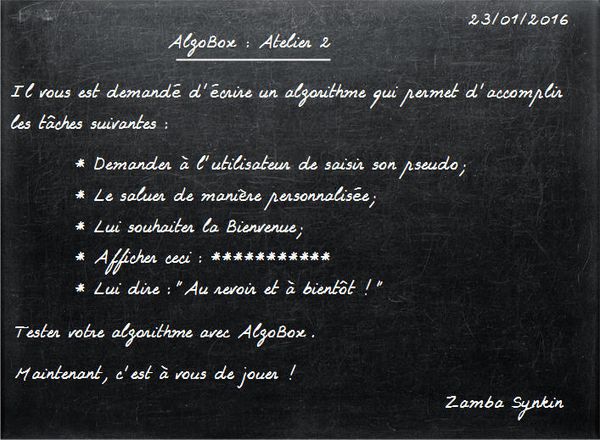 23/01/2016
AlgoBox : Atelier 2
Il vous est demandé d'écrire un algorithme qui permet d'accomplir
les tâches suivantes :
* Demander à l'utilisateur de saisir son pseudo;
* Le saluer de manière personnalisée;
* Lui souhaiter la Bienvenue;
* Afficher ceci : ***********
* Lui dire : "Au revoir et à bientôt !"
Tester votre algorithme avec AlgoBox.
Maintenant, c'est à vous de jouer !
Zamba Synkin